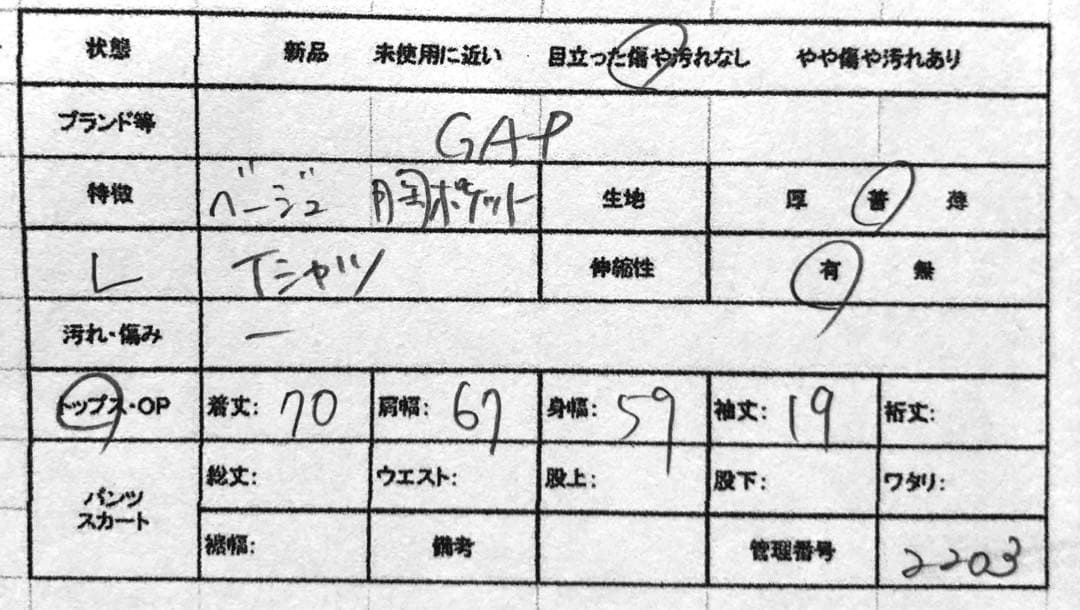 状態 新品 未使用に近い 目立った傷や汚れなし やや傷や汚れあり
ブランド等 GAP
特徴 ベージュ 胸ポケット 生地 厚 普 薄
L Tシャツ 伸縮性 有 無
汚れ・傷み ー
トップス・OP 着丈: 70 肩幅: 67 身幅: 59 袖丈: 19 裄丈:
パンツ スカート 総丈: ウエスト: 股上: 股下: ワタリ:
裾幅: 備考 管理番号 2203